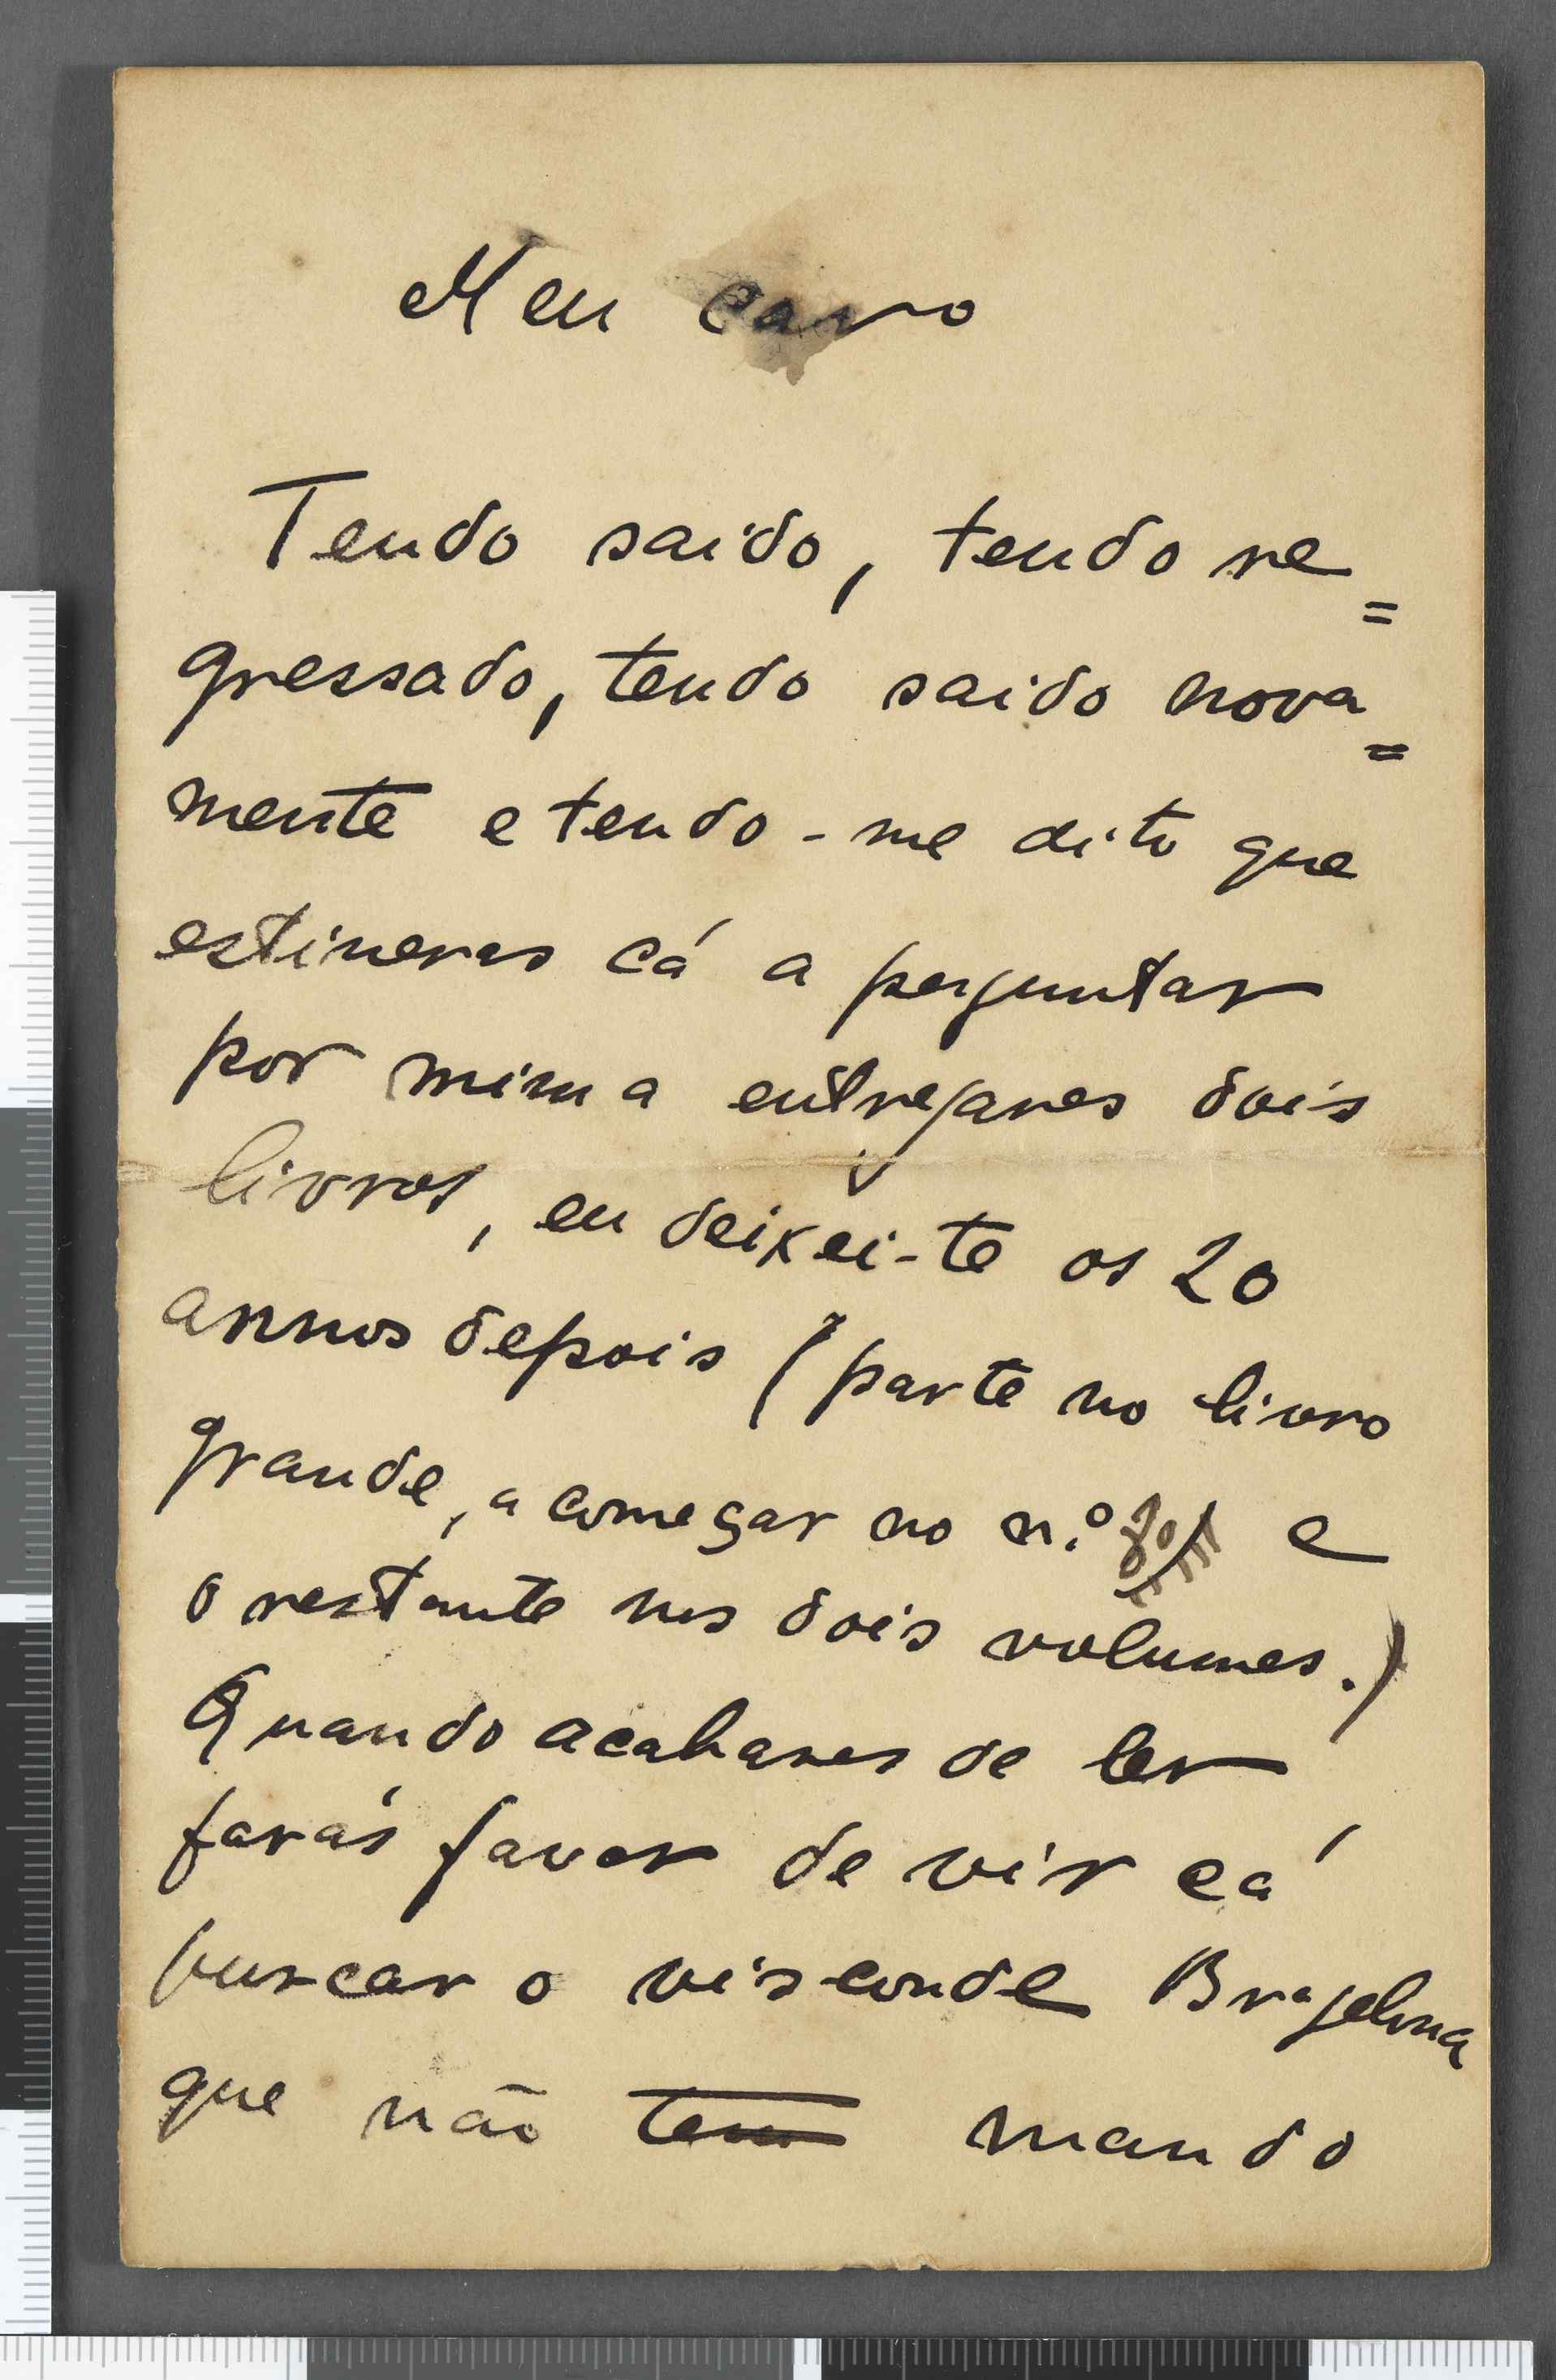 Meu caro
Tendo saido, tendo re=
gressado, tendo saido nova=
mente e tendo-me dito que
estiveras cá a perguntar
por mim a entregares dois
livros, eu deixei-te os 20
annos depois (parte no livro
grande, a começar no n.º e
o restante nos dois volumes.)
Quando acabares de ler
farás favor de vir cá
buscar o visconde Bragelona
que não tem mando